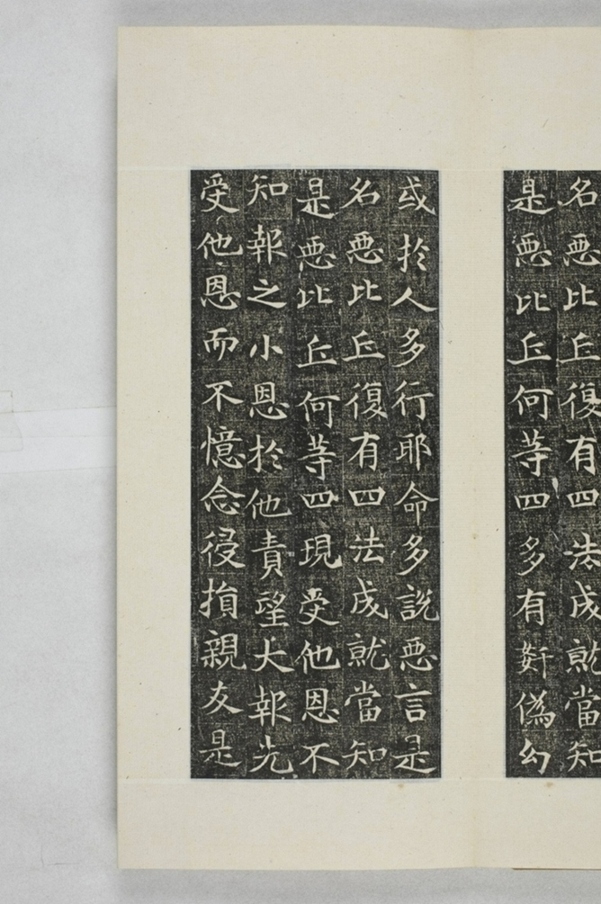 名惡比丘復有四法成就當知
是惡比丘何等四多有姧偽幻
或於人多行耶命多說惡言是
名惡比丘復有四法成就當知
是惡比丘何等四現受他恩不
知報之小恩於他責望大報先
受他恩而不憶念侵損親友是